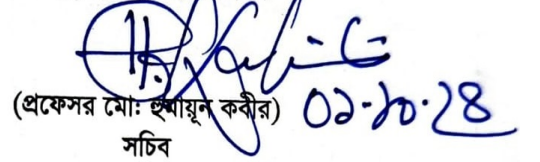 (প্রফেসর মো: হুমায়ূন কবীর) ০১-১০-২৪
সচিব